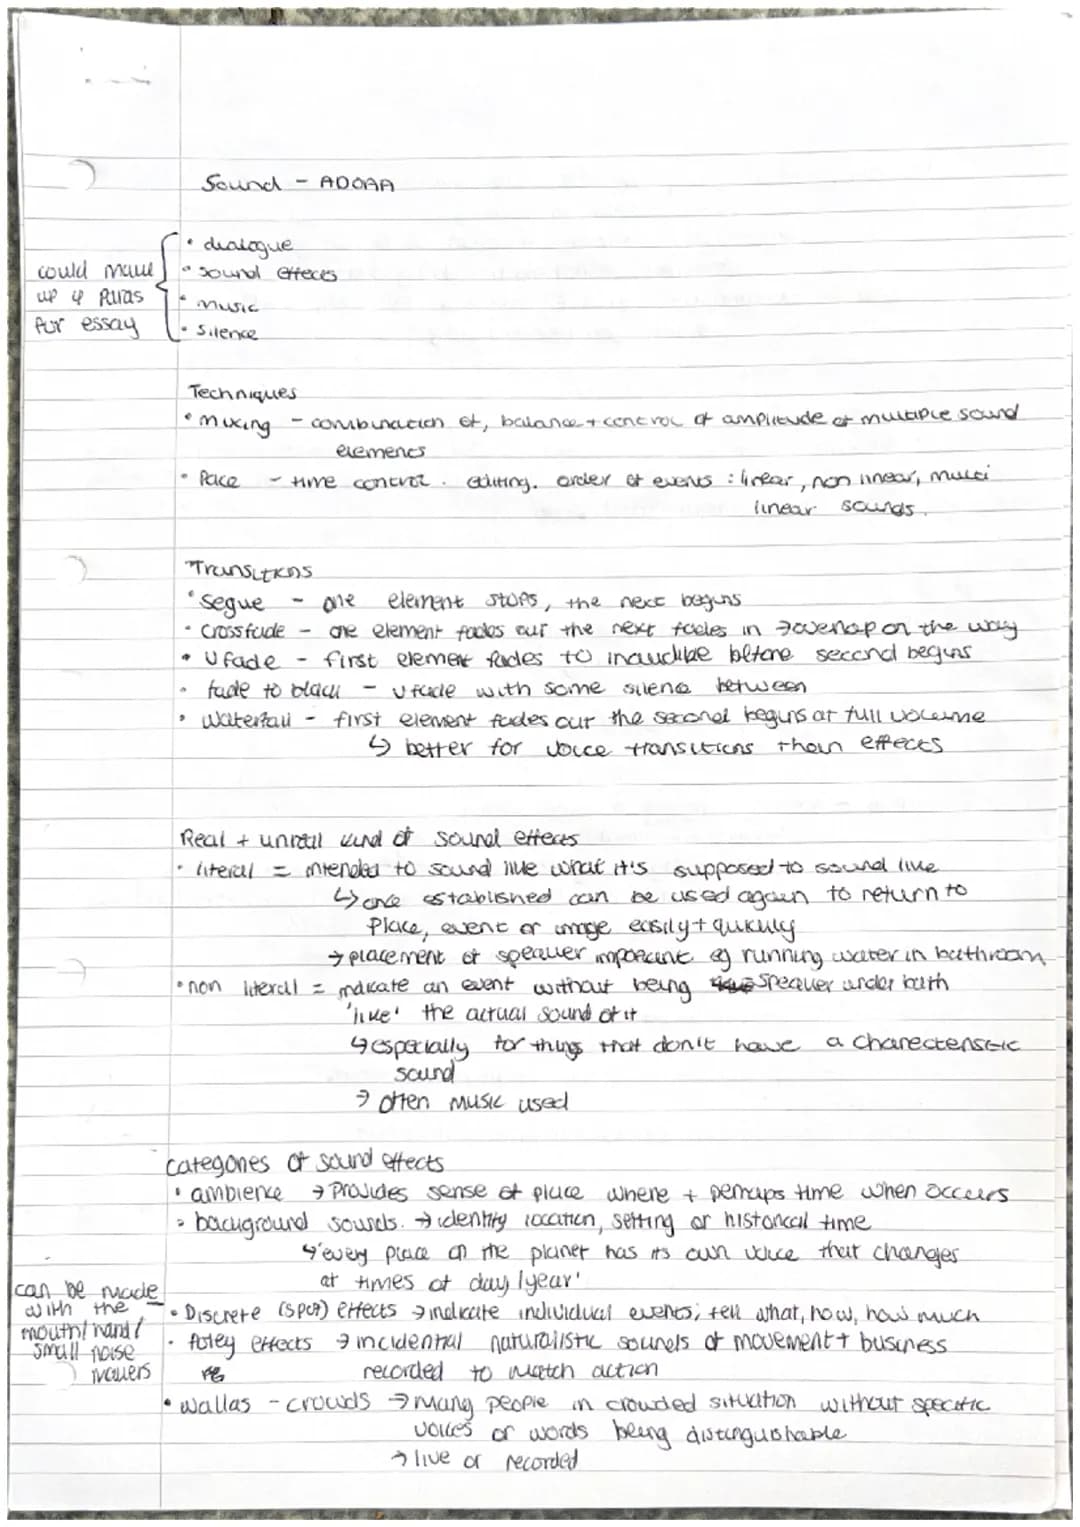 Sound - ADOAA
• dialogue
• sound effects
• music
• silence
could make
up 4 paras
for essay
Techniques
• mixing - combination of, balance + control of amplitude of multiple sound
elements
• Pace - time control. editing. order of events : linear, non linear, multi
linear sounds.
Transitions
• Segue - one element stops, the next begins
• Crossfade - one element fades out the next fades in → overlap on the way
• Ufade - first element fades to inaudible before second begins
• fade to black - Ufade with some silence between
• Waterfall - first element fades out the second begins at full volume
↳ better for voice transitions than effects
Real + unreal kind of sound effects
• literal = intended to sound like what it's supposed to sound like
↳ once established can be used again to return to
Place, event or image easily + quickly
→ placement of speaker important eg running water in bathroom
• non literal = indicate an event without being speaker under bath
'like' the actual sound of it
↳ especially for things that don't have a characteristic
sound
→ often music used
Categories of sound effects
• ambience → Provides sense of place where + perhaps time when occurs
• background sounds. → identity location, setting or historical time
↳ 'every place on the planet has its own voice that changes
at times of day/year'
• Discrete (spot) effects → indicate individual events; tell what, how, how much
• foley effects → incidential naturalistic sounds of movement + business
recorded to match action
can be made
with the
mouth/hand/
small noise
makers
• wallas - crowds → Many people in crowded situation without specific
voices or words being distinguishable
→ live or recorded